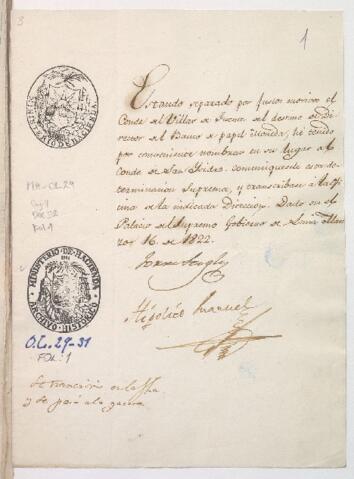 3
1
Estando separado por justos motivos el
Conde del Villar de Fuente del destino de Di-
rector del Banco de papel moneda, he tenido
por conveniente nombrar en su lugar al
Conde de San Isidro. comuniquese esta de-
terminacion Suprema, y transcribase a la ofi
cina de la indicada Direccion. Dado en el
Palacio del Supremo Gobierno de Lima Mar
zo 16 de 1822.
Hipólito Unanue
MINISTERIO DE HACIENDA
ARCHIVO HISTORICO
O.L. 29-31
FOL: 1